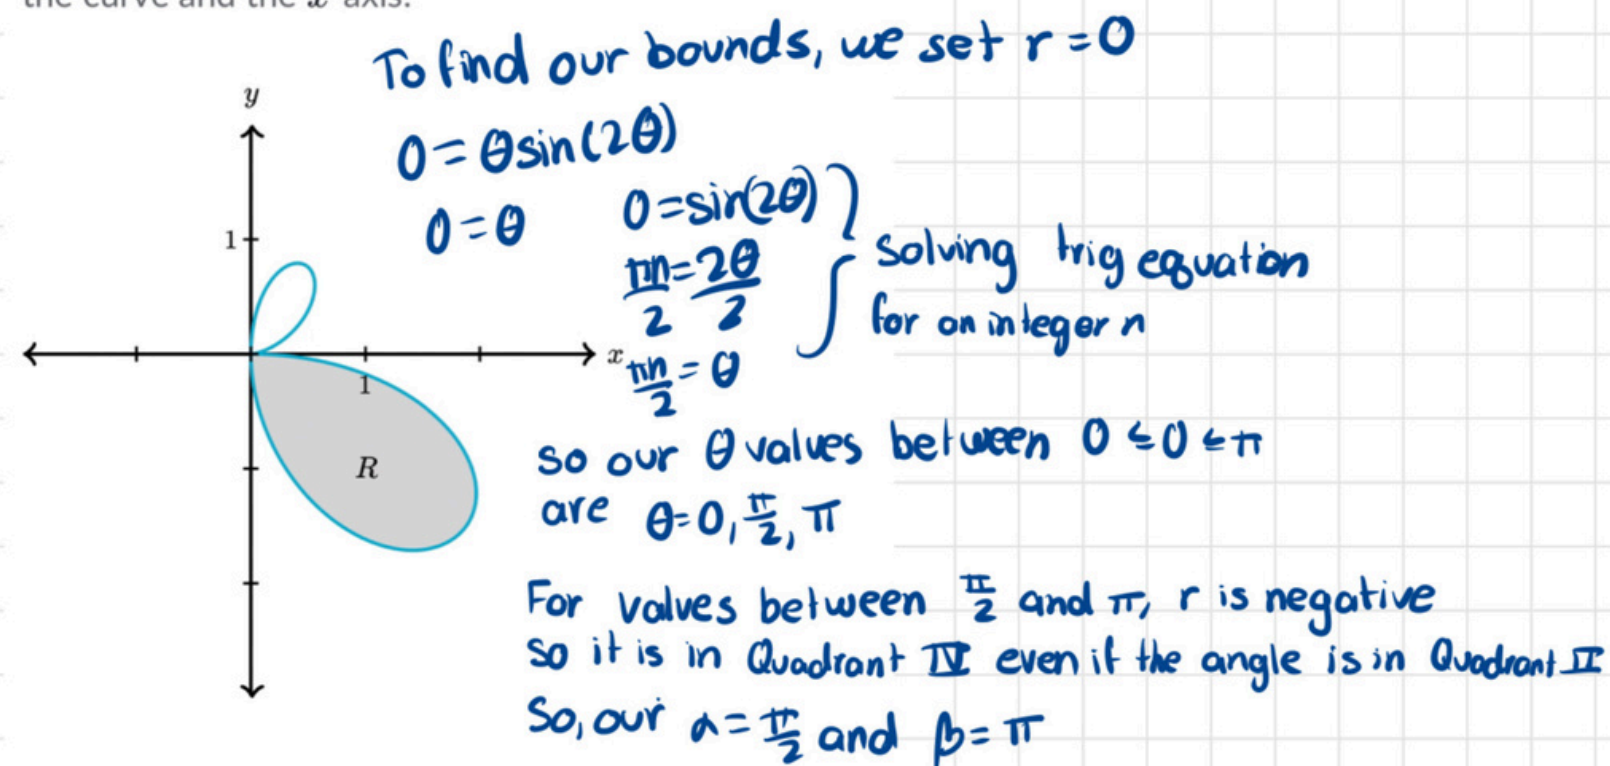 the curve and the x-axis.
To find our bounds, we set r = 0
y
0 = θsin(2θ)
0 = θ
0 = sin(2θ)
πn/2 = 2θ/2
πn/2 = θ
1
x
1
R
solving trig equation
for an integer n
so our θ values between 0 ≤ θ ≤ π
are θ = 0, π/2, π
For values between π/2 and π, r is negative
so it is in Quadrant IV even if the angle is in Quadrant II
So, our α = π/2 and β = π